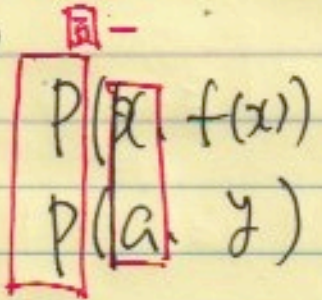 圖一
P(x, f(x))
P(a, y)